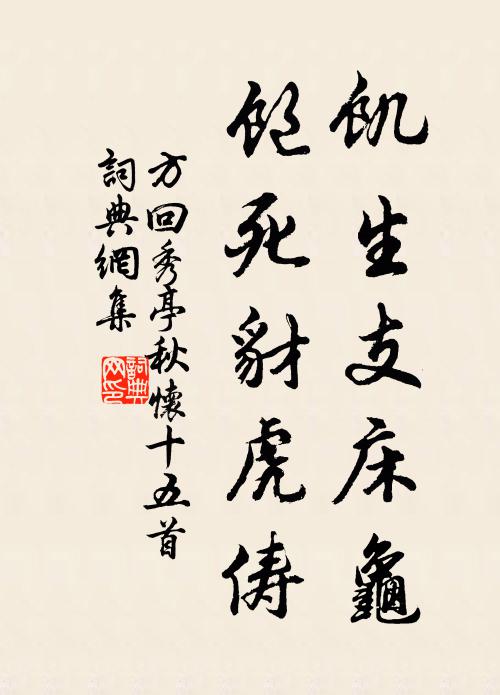 飢生支床龜
飽死豺虎儔
方回秀亭秋懷十五首
詞典網集
詞典网印